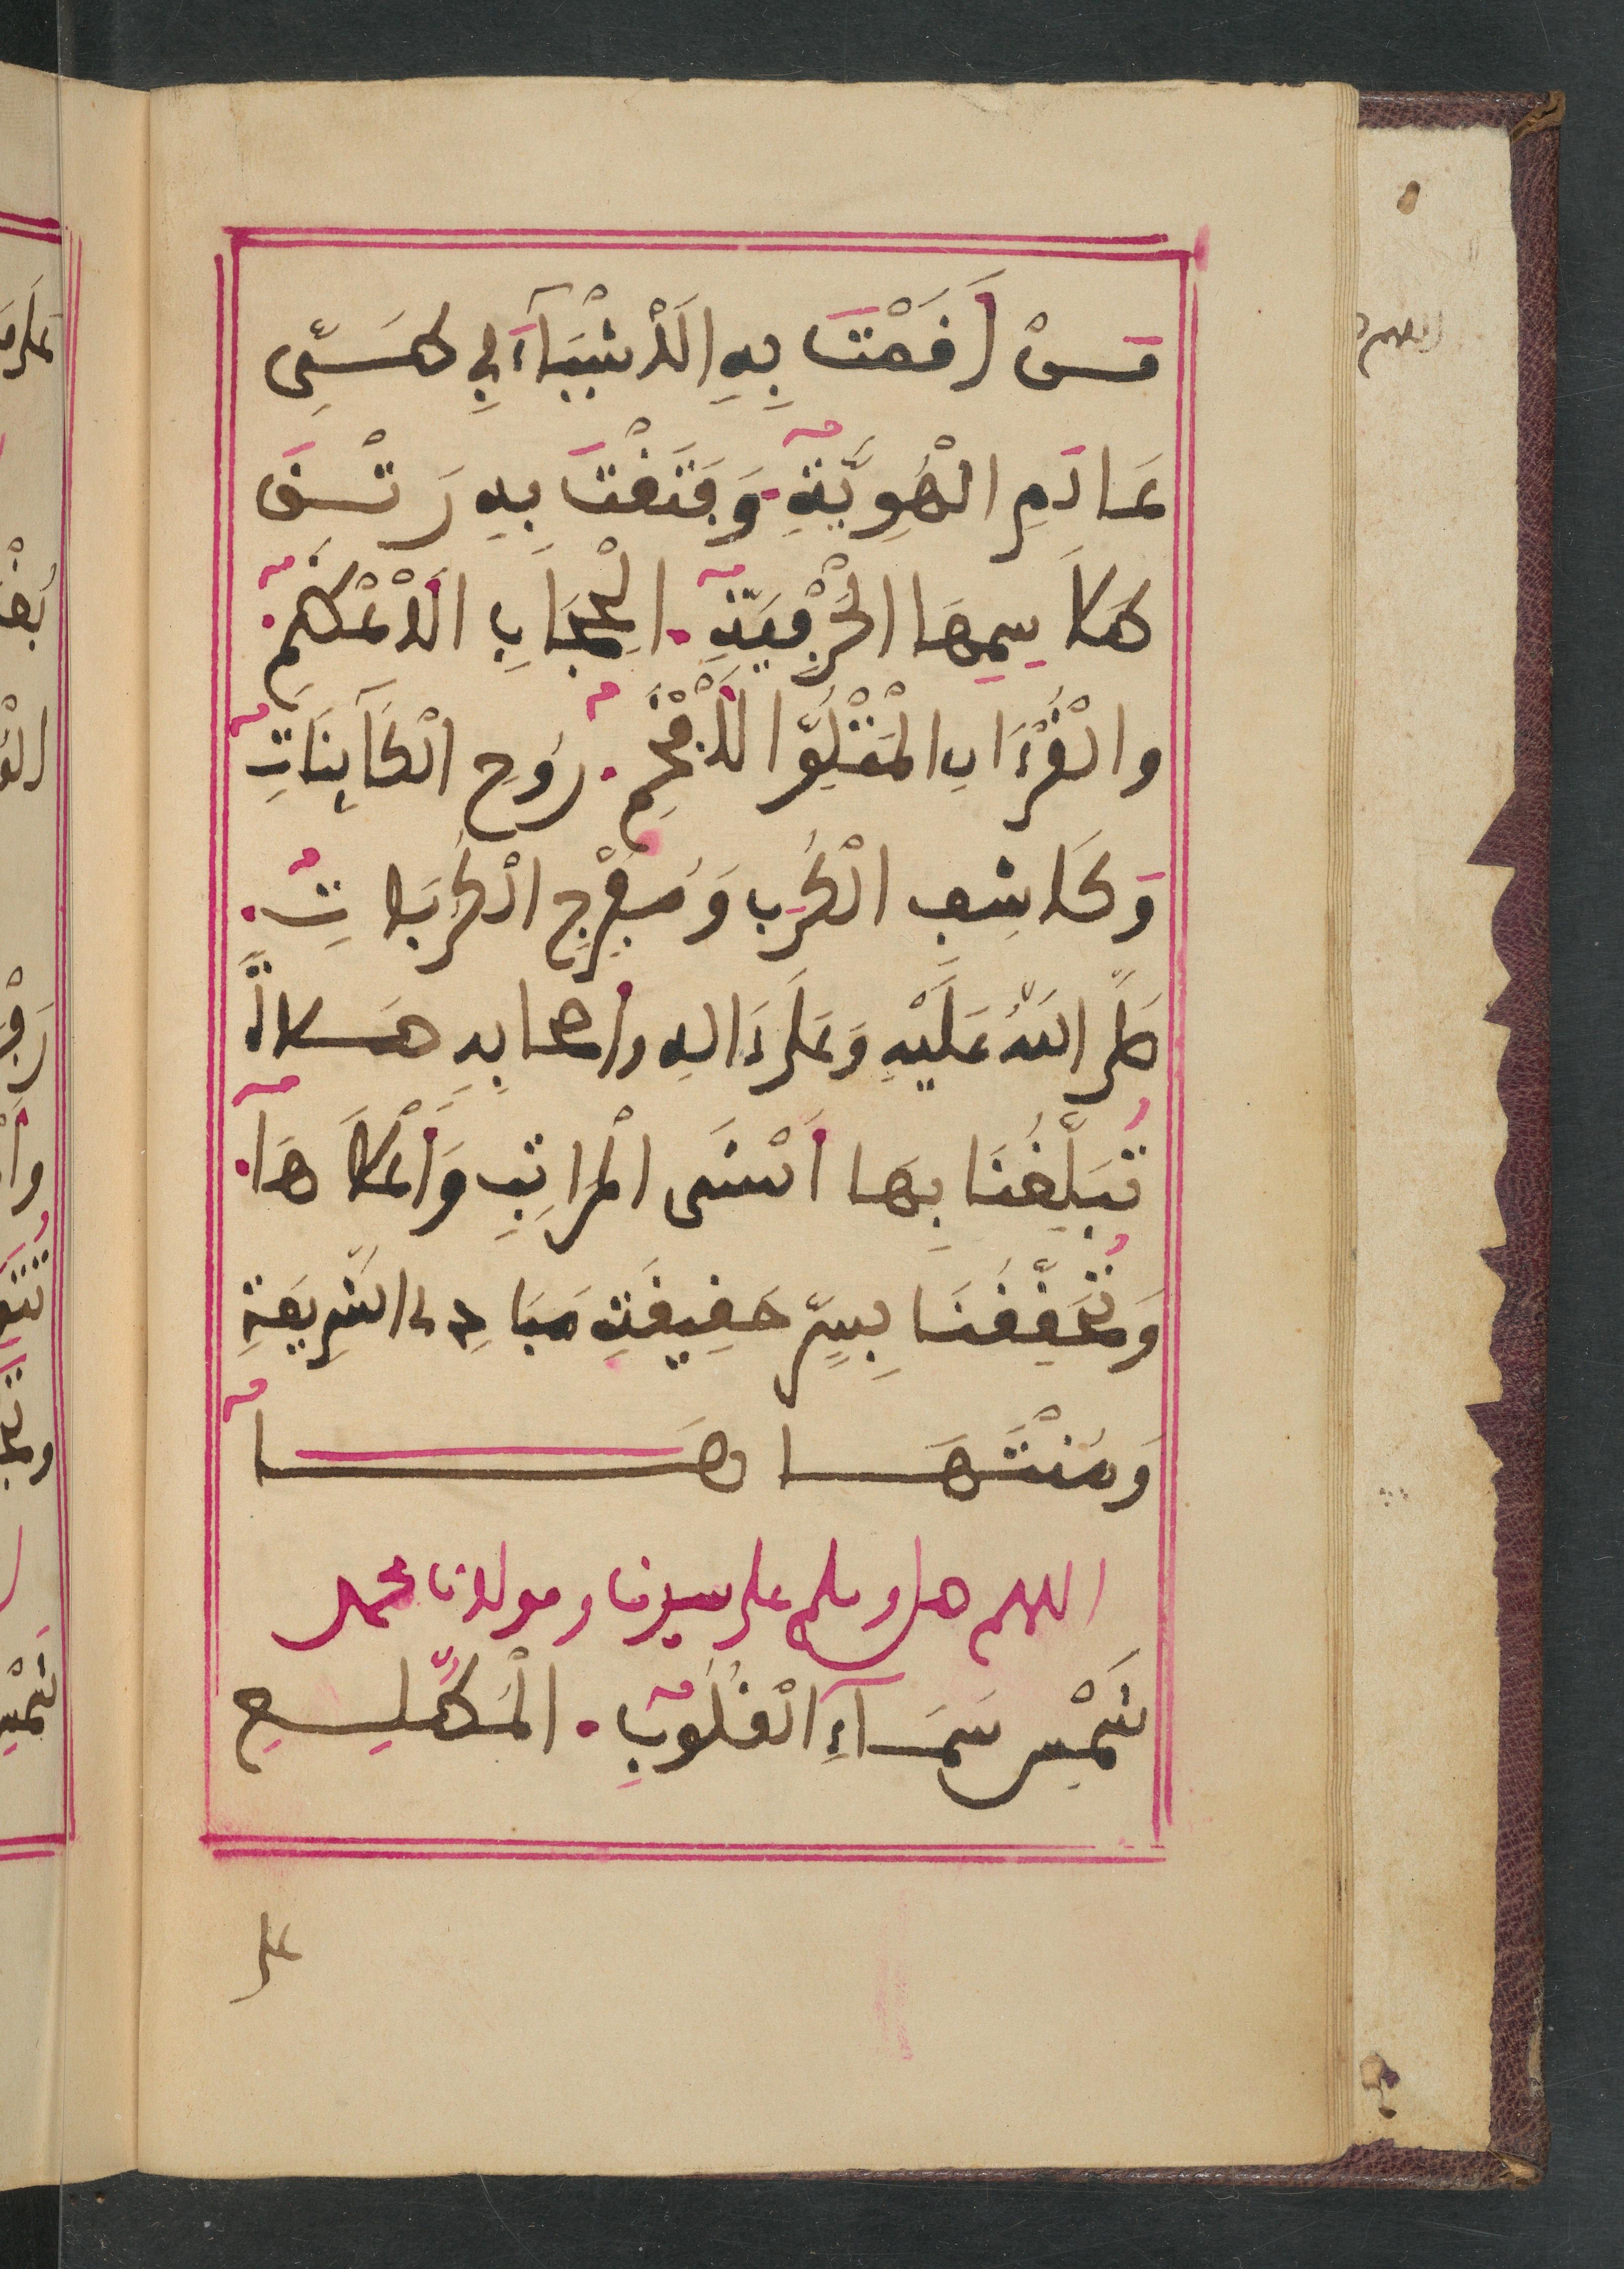 مَنْ أَقَمْتَ بِهِ الَاشْيَاءَ فِي طَيِّ
عَادَمِ الْهُوِيَّةِ وَفَتَقْتَ بِهِ رَتْقَ
طَلَاسِمِهَا الْحَرْفِيَّةِ. الْحِجَابِ الَاعْظَمِ.
وَالْقُرْءَانِ الْمَتْلُوِّ الَافْخَمِ. رُوحِ الْكَآئِنَاتِ
وَكَاشِفِ الْكُرَبِ وَمُفَرِّجِ الْكُرُبَاتِ.
صَلَّى اللَّهُ عَلَيْهِ وَعَلَى ءَالِهِ وأصحابِهِ صَلاةً
تُبَلِّغُنَا بِهَا أَسْنَى الْمَرَاتِبِ وَأَعْلَاهَا.
وَتُحَقِّقُنَا بِسِرِّ حَقِيقَةِ مَبَادِىِ الشَّرِيعَةِ
وَمُنْتَهَاهَا
اللهم صل وسلم على سيدنا ومولانا محمد
شَمْسِ سَمَآءِ الْقُلُوبِ. الْمُطَّلِعِ
على
اللهم